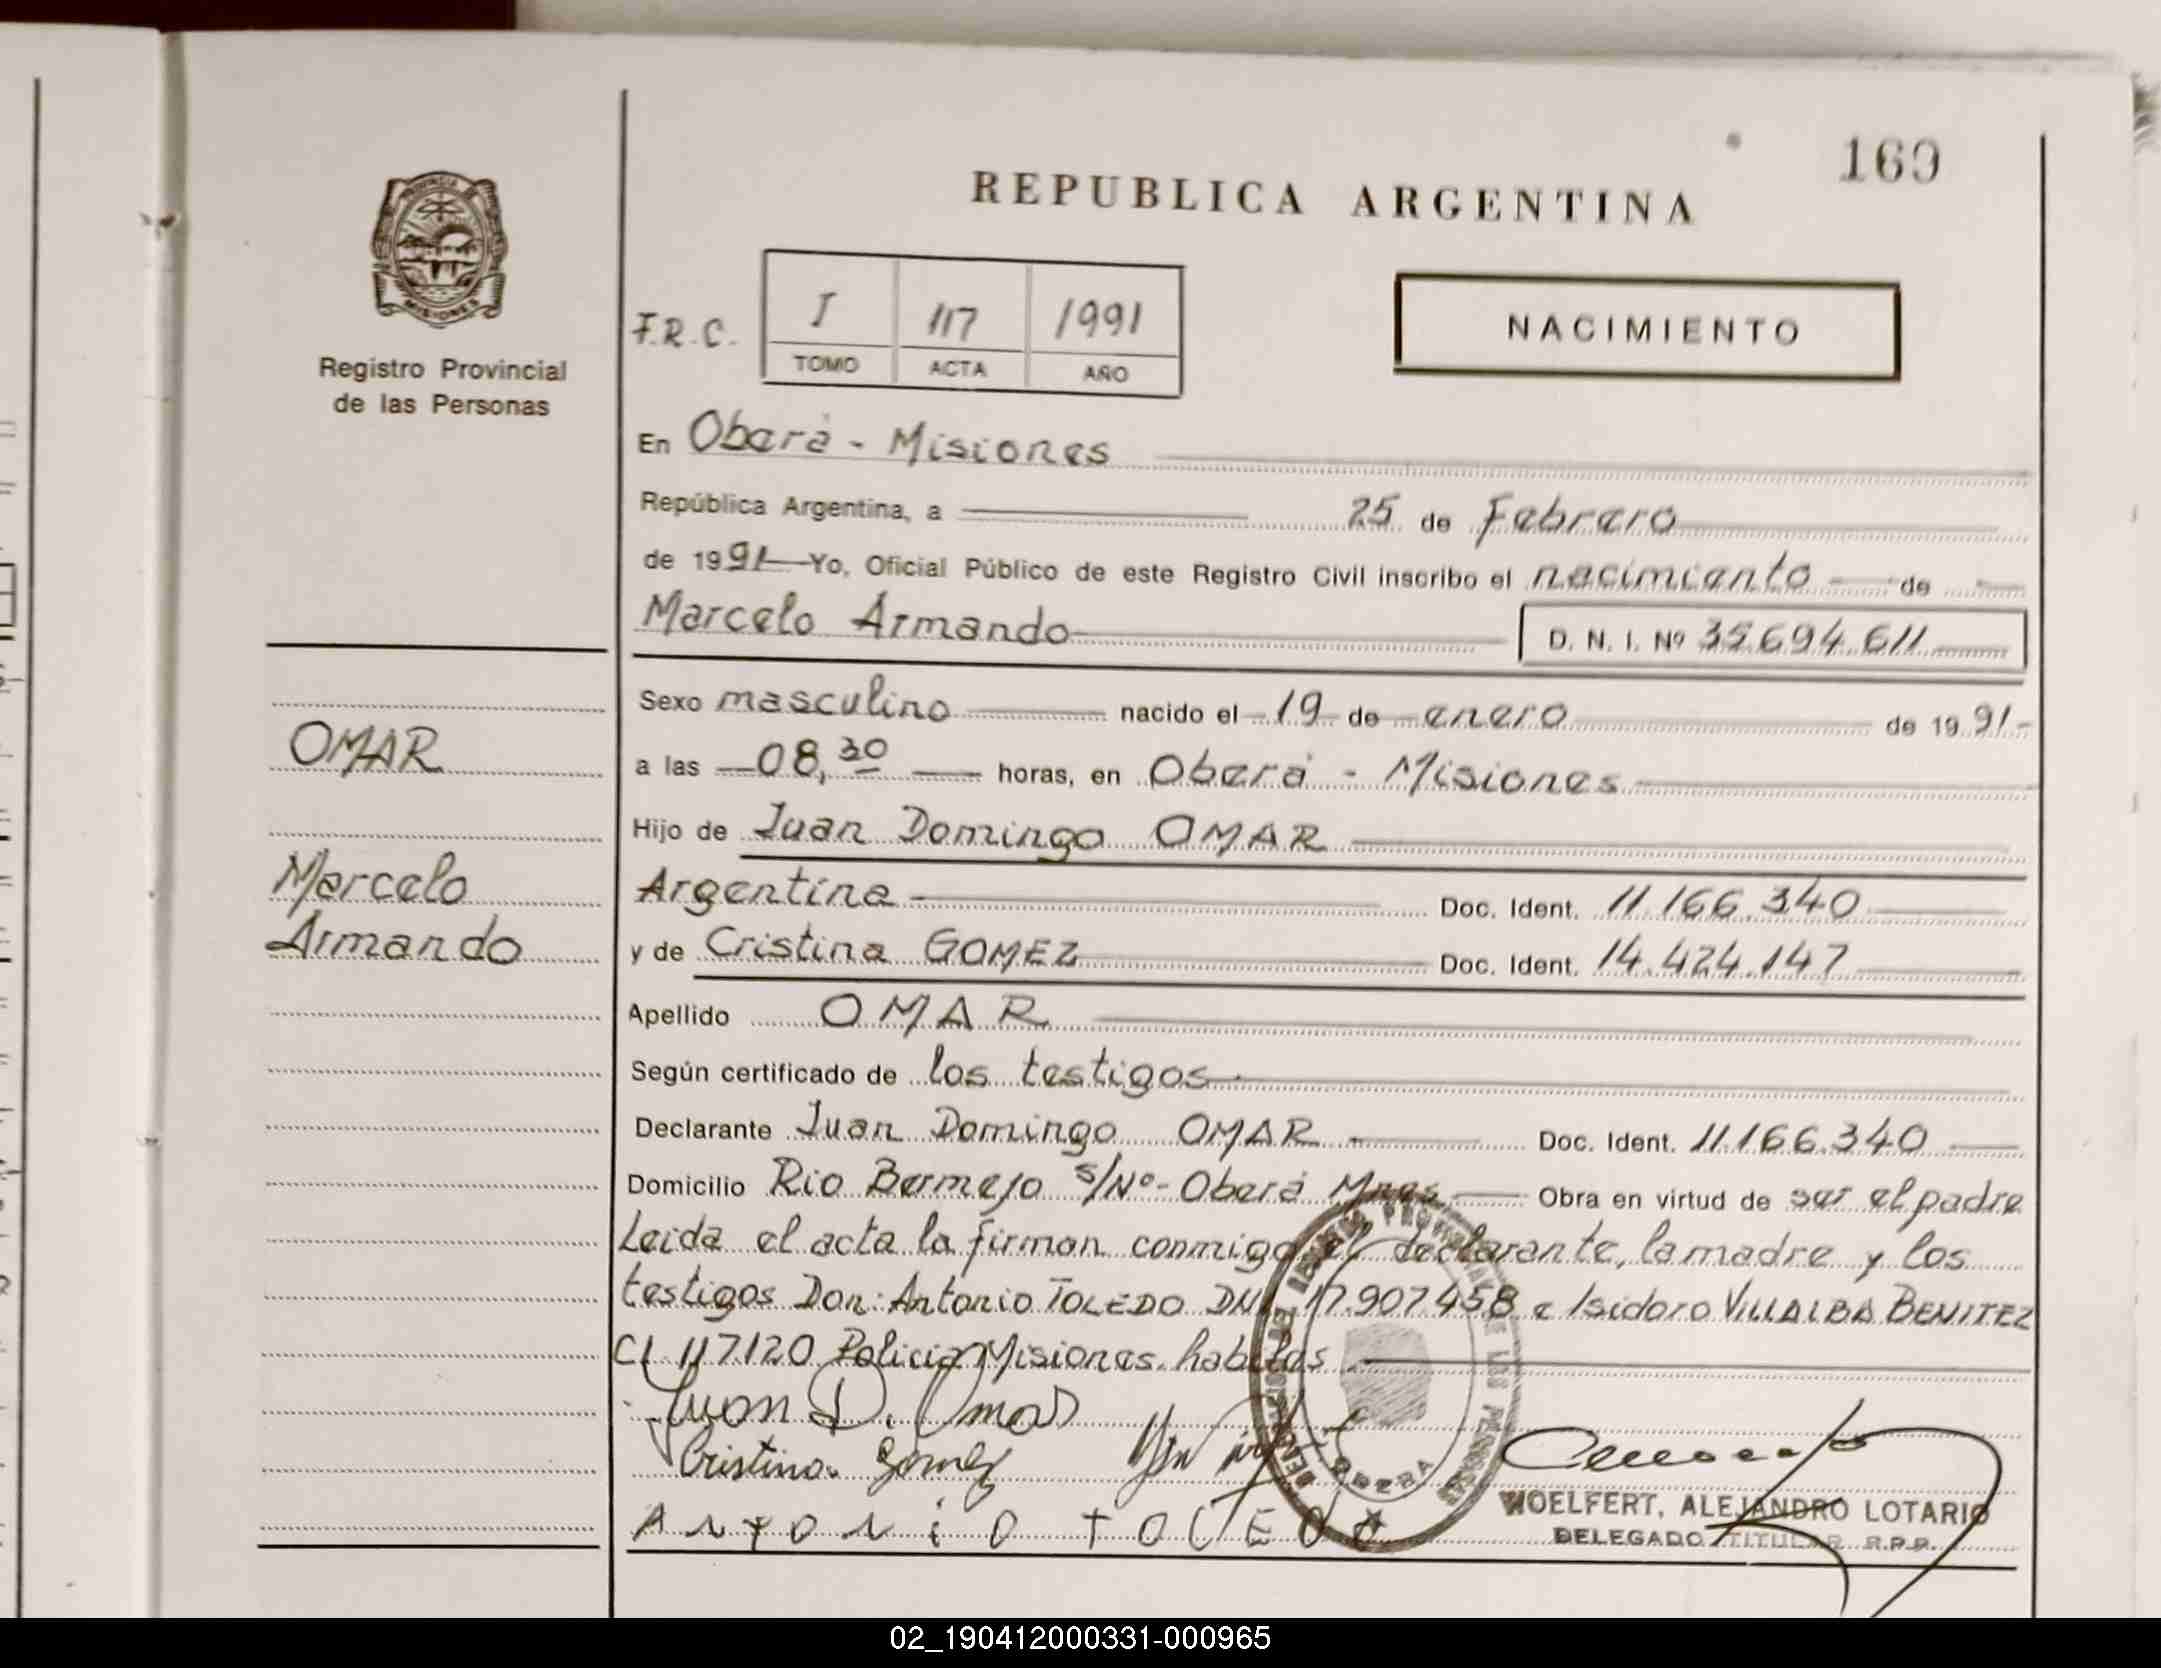 169
REPUBLICA ARGENTINA
PROVINCIA DE
MISIONES
Registro Provincial
de las Personas
F.R.C.
I 117 1991
TOMO ACTA AÑO
NACIMIENTO
En Oberá - Misiones
República Argentina, a 25 de Febrero
de 1991 Yo, Oficial Público de este Registro Civil inscribo el nacimiento de
Marcelo Armando D. N. I. Nº 35.694.611
Sexo masculino nacido el 19 de enero de 1991
OMAR
a las 08,30 horas, en Oberá - Misiones
Hijo de Juan Domingo OMAR
Marcelo
Argentina Doc. Ident. 11.166.340
Armando
y de Cristina GOMEZ Doc. Ident. 14.424.147
Apellido OMAR
Según certificado de los testigos
Declarante Juan Domingo OMAR Doc. Ident. 11.166.340
Domicilio Rio Bermejo s/Nº - Oberá Mnes Obra en virtud de ser el padre
Leida el acta la firman conmigo el declarante, la madre y los
testigos Don: Antonio TOLEDO DNI. 17.907.458 e Isidoro VILLALBA BENITEZ
CI 117.120 Policia Misiones. habiles
Juan D. Omar
Cristina Gomez
ANTONIO TOLEDO
OBERA
WOELFERT, ALEJANDRO LOTARIO
DELEGADO TITULAR R.P.P.
02_190412000331-000965